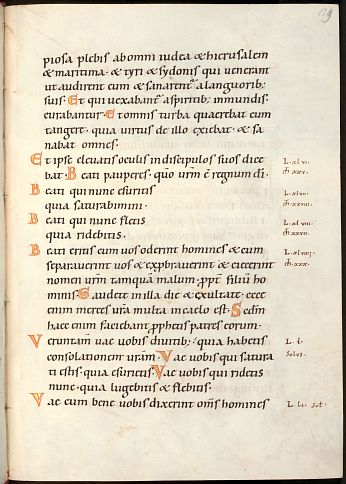 129
piosa plebis ab omni iudea & hierusalem
& maritima · & tyri & sydonis qui venerant
ut audirent eum & sanarent' a languorib;
suis · Et qui uexabant' a spiritib; inmundis ·
curabantur · Et omnis turba quaerebat eum
tangere · quia uirtus de illo exiebat · & sa
nabat omnes ·
Et ipse eleuatis oculis in discipulos suos dice
bat · Beati pauperes · quo urm̄ ē regnum dī ·
Beati qui nunc esuritis
quia saturabimini ·
Beati qui nunc fletis
quia ridebitis ·
Beati eritis cum uos oderint homines & cum
separauerint uos & exprobrauerint & eiecerint
nomen urm̄ tamquā malum · ppt̄ filiū ho
minis · Gaudete in illa die & exultate · ecce
enim merces ura̅ multa in caelo est · Scdm̄
haec enim faciebant pphetis patres eorum ·
Veruntam̄ uae uobis diuitib; · quia habetis
consolationem uram̄ · Vae uobis qui satura
ti estis · quia esurietis · Vae uobis qui ridetis
nunc · quia lugebitis & flebitis ·
Vae cum bene uobis dixerint om̅s homines
L · xlvi ·
m̄ xxv ·
L · xlvii
m̄ xxviii ·
L · xlviii
m̄ xxvii ·
L · xlviiii ·
m̄ xxx ·
L · l ·
Solus ·
L · li · sol ·